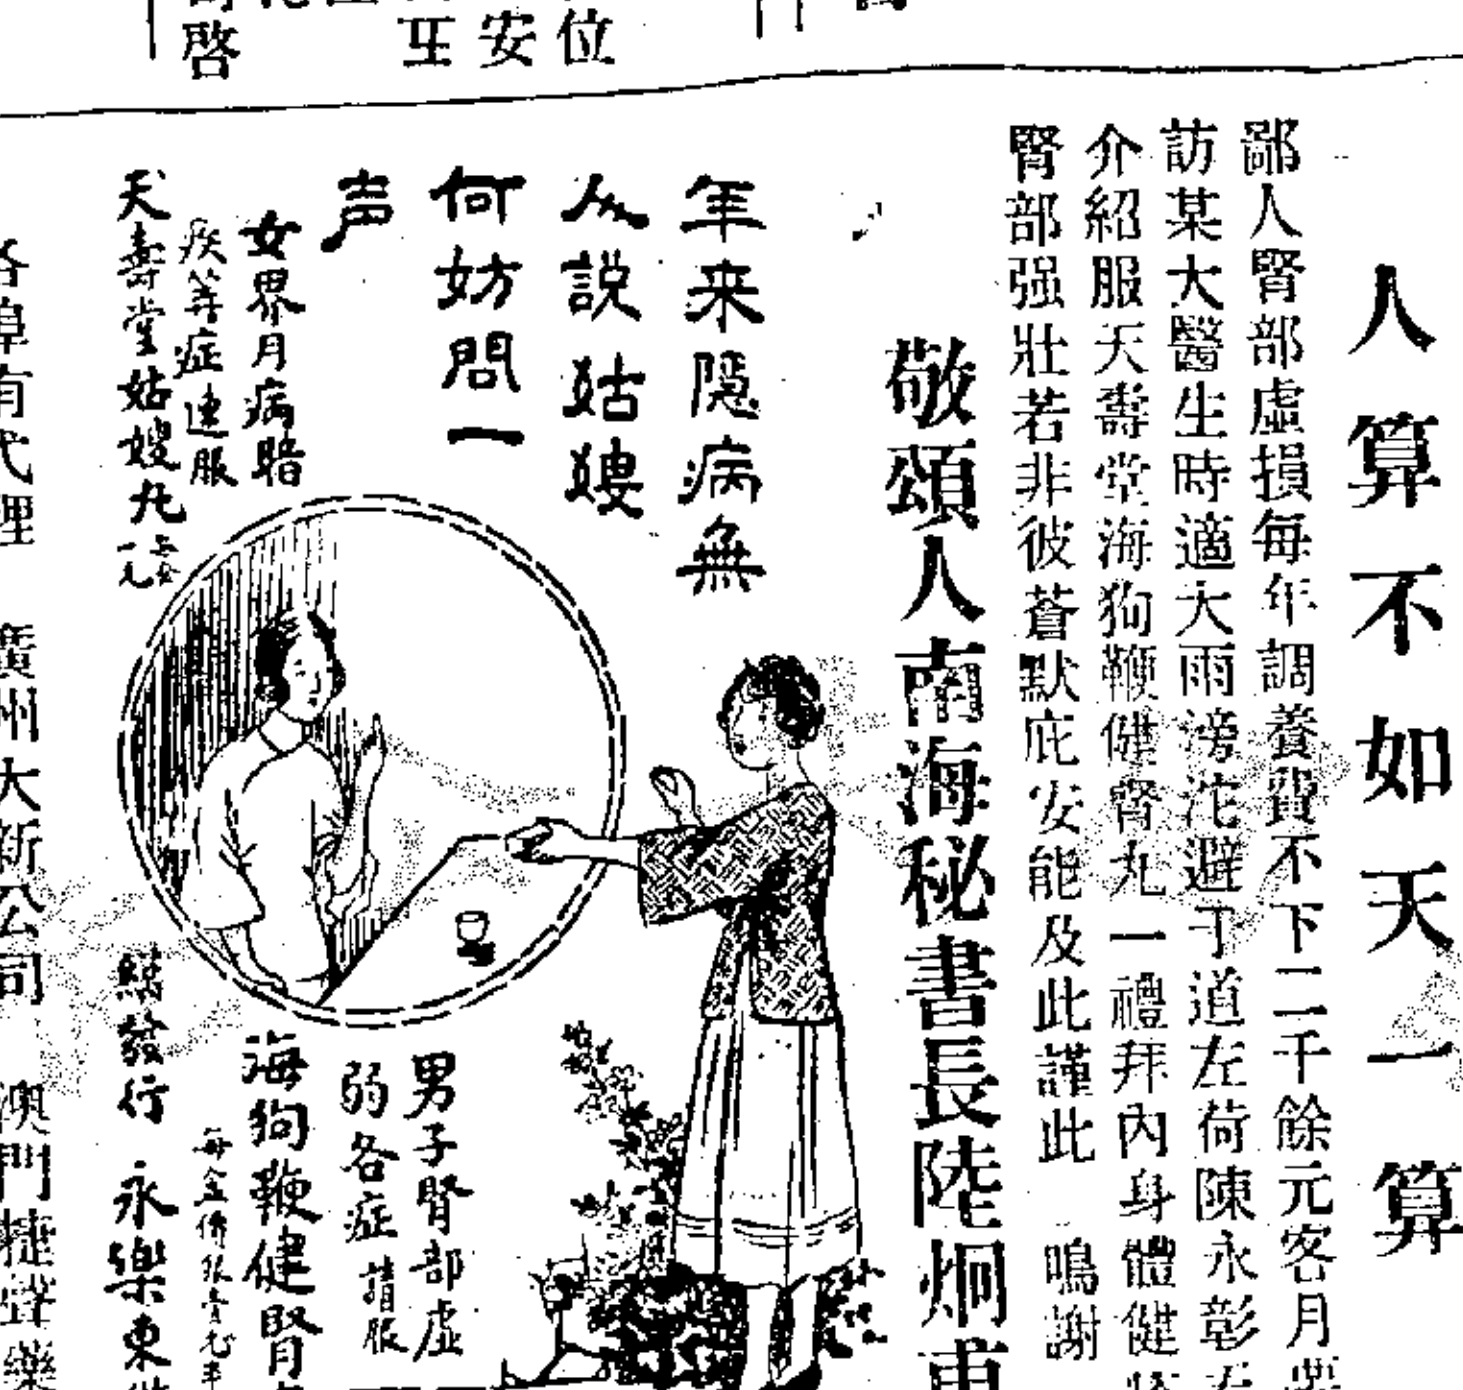 啓
安
位
人算不如天一算
鄙人腎部虛損每年調養費不下二千餘元客月
訪某大醫生時適大雨滂沱避于道左荷陳永彰
介紹服天壽堂海狗鞭健腎丸一禮拜內身體健
腎部强壯若非彼蒼默庇安能及此謹此 鳴謝
敬頌人南海秘書長陸炯
年来隱病無
人說姑嫂
何妨問一
声
女界月病暗
疾等症速服
天壽堂姑嫂丸
一元
男子腎部虛
弱各症請服
海狗鞭健腎
發行 永樂東
各埠有代理 廣州大新公司 澳門捷聲藥